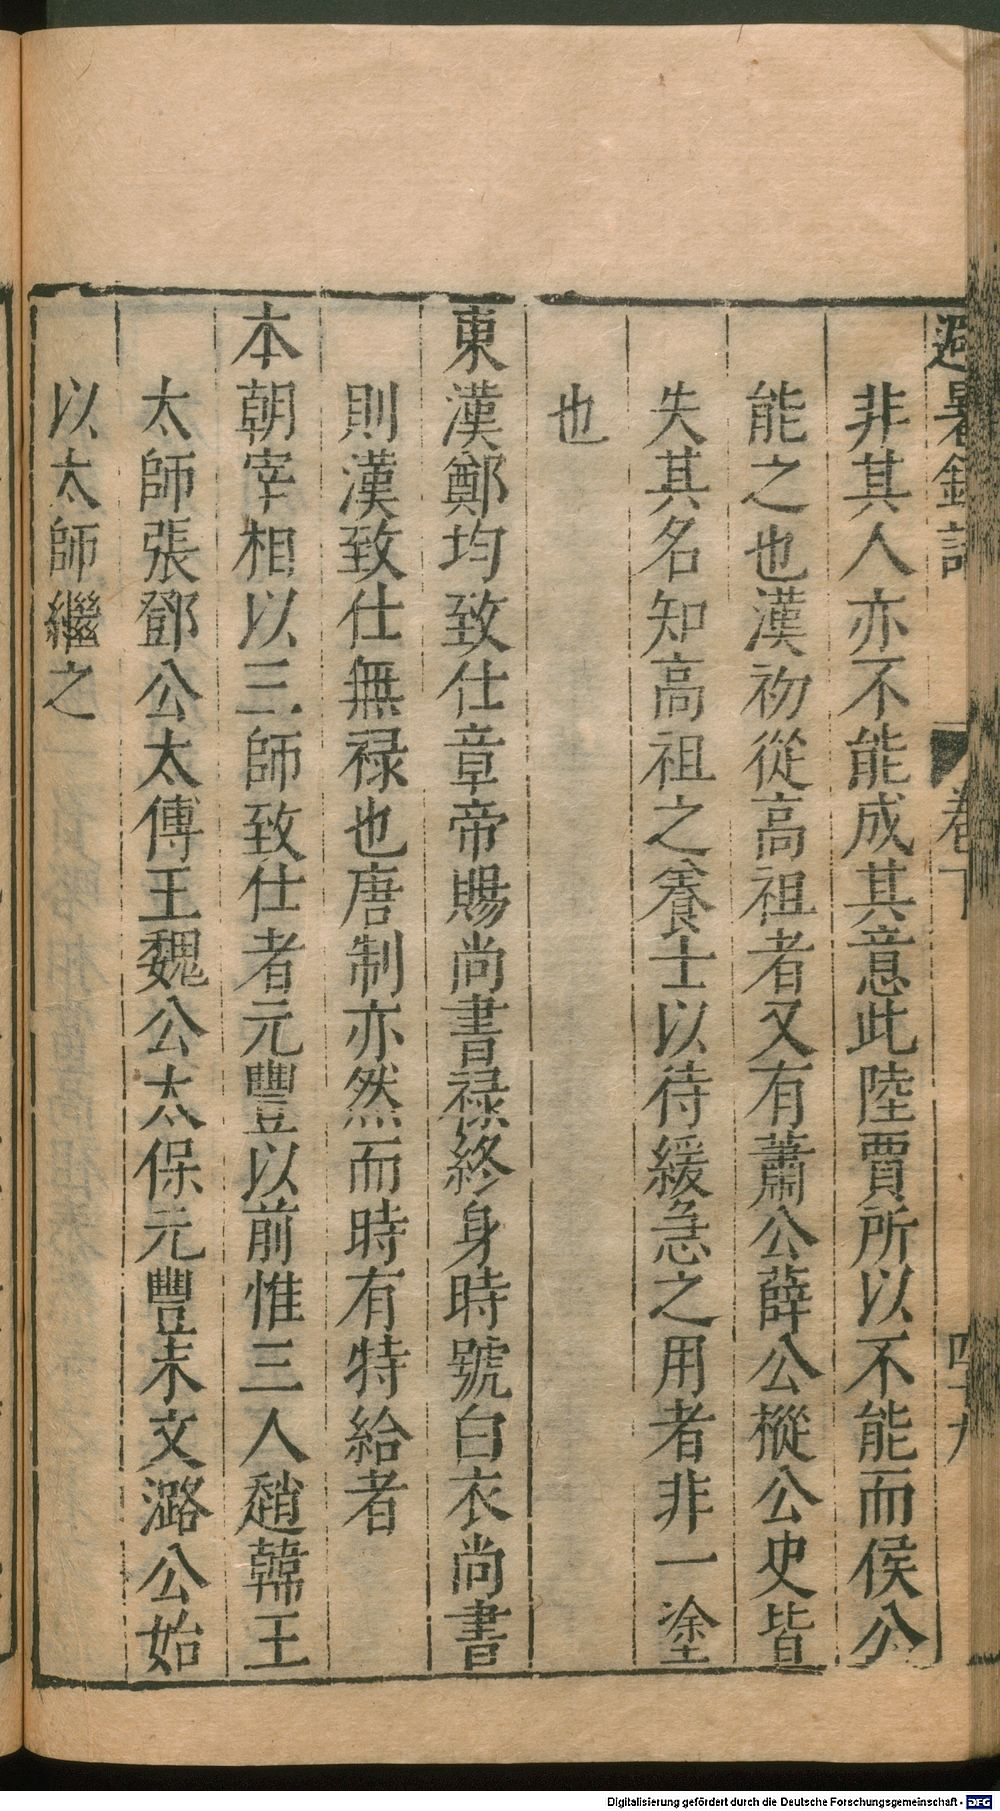 避暑錄話 卷下 四十九
非其人亦不能成其意此陸賈所以不能而侯公
能之也漢初從高祖者又有蕭公薛公樅公史皆
失其名知高祖之養士以待緩急之用者非一塗
也
東漢鄭均致仕章帝賜尚書祿終身時號白衣尚書
則漢致仕無祿也唐制亦然而時有特給者
本朝宰相以三師致仕者元豐以前惟三人趙韓王
太師張鄧公太傅王魏公太保元豐末文潞公始
以太師繼之
Digitalisierung gefördert durch die Deutsche Forschungsgemeinschaft - DFG